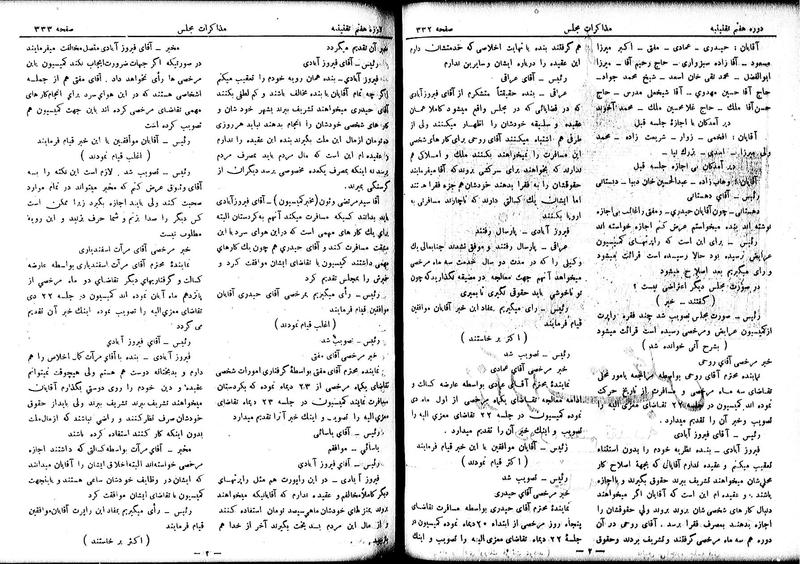 دوره هفتم تقنینیه
مذاکرات مجلس
صفحه ۳۳۲
آقایان : حیدری ـ عمادی ـ مفتی ـ اکبر میرزا
مسعود ـ آقا زاده سبزواری ـ حاج رحیم آقا ـ میرزا
ابوالفضل ـ محمد تقی خان اسعد ـ شیخ محمد جواد ـ
حاج آقا حسین مهدوی ـ آقا شیخعلی مدرس ـ حاج
حسن آقا ملک ـ حاج غلامحسین ملک ـ محمد آخوند
دیر آمدگان با اجازه جلسه قبل
آقایان : افخمی ـ زوار ـ شریعت زاده ـ محمد
ولی میرزا ـ اسدی ـ بزرگ نیا ـ
دیر آمدگان بی اجازه جلسه قبل
آقایان : وهاب زاده ـ عبدالحسین خان دیبا ـ دستانی
رئیس ـ آقای دهستانی
دهستانی ـ چون آقایان حیدری ـ ومفتی راغائب بی اجازه
نوشته اند بنده میخواستم عرض کنم اجازه خواسته اند
رئیس ـ برای این است که راپرتهای کمیسیون
عرایض رسیده بود حالا رسیده است قرائت میشود
و رأی میگیریم بعد اصلاح میشود
در صورت مجلس دیگر اعتراضی نیست ؟
( گفتند ـ خیر )
رئیس ـ صورت مجلس تصویب شد چند فقره راپرت
از کمیسیون عرایض و مرخصی رسیده است قرائت میشود
( بشرح آتی خوانده شد )
خبر مرخصی آقای روحی
نماینده محترم آقای روحی بواسطه مراجعه بامور محلی
تقاضای سه ماه مرخصی و مسافرت از تاریخ حرکت
نموده اند کمیسیون در جلسه ۲۲ تقاضای معزی الیه را
تصویب وخبر آن را تقدیم میدارد .
رئیس ـ آقای فیروز آبادی
فیروز آبادی ـ بنده نظریه خودم را بدون استثناء
تعقیب میکنم و عقیده ندارم آقایانی که بجهة اصلاح کار
محلی شان میخواهند تشریف ببرند حقوق بگیرند و بااجازه
باشند و عقیده ام این است که آقایان اگر میخواهند
دنبال کار های شخصی شان بروند بروند ولی حقوقشان را
اجازه بدهند بمصرف فقرا برسد . آقای روحی در آن
دفعه هم سه ماه مرخصی گرفتند و تشریف بردند وحقوق
هم گرفتند بنده با نهایت اخلاصی که خدمتشان دارم
این عقیده را درباره ایشان وسایرین ندارم
رئیس ـ آقای عراقی
عراقی ـ بنده حقیقتاً متشکرم از آقای فیروزآبادی
که در قضایائی که در مجلس واقع میشود کاملا همان
عقیده و سلیقه خودشان را اظهار میکنند ولی از
طرفی هم اشتباه میکنند آقای روحی برای کار های شخصی
این مسافرت را نمیخواهند بکنند ملک و املاکی هم
ندارند که بخواهند برای سرکشی بروند که آقا میفرمایند
حقوقشان را به فقرا بدهند خودشان هم جزء فقرا هستند
اما ایشان یک کسالتی دارند که ناچارند مسافرتی به
اروپا بکنند
فیروز آبادی ـ پارسال رفتند
عراقی ـ پارسال رفتند و موفق نشدند چنانچه یک
وکیلی را که در مدت دو سال خدمت سه ماه مرخصی
میخواهد آنهم جهت معالجه در مضیقه نگذارید که چون
تو ناخوشی باید حقوقی نگیری تا بمیری
رئیس ـ رای میگیریم بمفاد این خبر آقایان موافقین
قیام فرمایند
( اکثر بر خاستند )
رئیس ـ تصویب شد
خبر مرخصی آقای عمادی
نماینده محترم آقای عمادی بواسطه عارضه کسالت و
ادامه معالجه تقاضای یکماه مرخصی از اول ماه دی
نموده کمیسیون در جلسه ۲۲ تقاضای معزی الیه را
تصویب و اینک خبر آن را تقدیم میدارد .
رئیس ـ آقایان موافقین با این خبر قیام فرمایند
( اکثر قیام نمودند )
رئیس ـ تصویب شد
خبر مرخصی آقای حیدری
نماینده محترم آقای حیدری بواسطه مسافرت تقاضای
پنجاه روز مرخصی از ابتداء ۲۰ دیماه نموده کمیسیون در
جلسه ۲۲ دیماه تقاضای معزی الیه را تصویب و اینک
ـ ۲ ـ
دوره هفتم تقنینیه
مذاکرات مجلس
صفحه ۳۳۳
خبر آن تقدیم میگردد
رئیس ـ آقای فیروز آبادی
فیروز آبادی ـ بنده همان رویه خودم را تعقیب میکنم
اگر چه تمام آقایان با بنده مخالف باشند و کم لطفی بکنند
آقای حیدری میخواهند تشریف ببرند بشهر خود شان و
کار های شخصی خودشان را انجام بدهند نباید هر روزی
تومان از مال این ملت بگیرند بنده این عقیده را ندارم
عقیده ام این است که مال مردم باید بمصرف مردم
برسد نه اینکه بمصرف یکعده مخصوصی برسد دیگران از
گرسنگی بمیرند.
آقا سید مرتضی وثوق (مخبر کمیسیون) ـ آقای فیروزآبادی
باید بدانند کسیکه مسافرت میکند آنهم به کردستان البته
برای یک کار های مهمی است که در این هوای سرد با این
مشقت مسافرت کنند و آقای حیدری هم چون یک کارهای
مهمی داشتند کمیسیون با تقاضای ایشان موافقت کرد و
خبرش را بمجلس تقدیم کرد
رئیس ـ رأی میگیریم بمرخصی آقای حیدری آقایان
موافقین قیام فرمایند
( اغلب قیام نمودند )
رئیس ـ تصویب شد
خبر مرخصی آقای مفتی
نماینده محترم آقای مفتی بواسطه گرفتاری امورات شخصی
تقاضای یکماه مرخصی از ۲۳ دیماه نموده که بکردستان
مسافرت نمایند کمیسیون در جلسه ۲۳ دیماه تقاضای
معزی الیه را تصویب ـ و اینک خبر آنرا تقدیم میدارد
رئیس ـ آقای یاسائی
یاسائی ـ موافقم
رئیس ـ آقای فیروز آبادی
فیروز آبادی ـ در این راپورت هم مثل راپرتهای
دیگر کاملا مخالفم و عقیده ندارم که آقایانیکه میخواهند
بروند بمنزلهای خودشان ماهی سیصد تومان استفاده کنند
و از مال این مردم بسد بخت بگیرند آخر از خدا هم
مخبر ـ آقای فیروز آبادی متصل مخالفت میفرمایند
در صورتیکه اگر جهات ضرورت ایجاب نکند کمیسیون باین
مرخصی ها رأی نخواهد داد. آقای مفتی هم از جمله
اشخاصی هستند که در این هوای سرد برای انجام کار های
مهمی تقاضای مرخصی کرده اند باین جهت کمیسیون هم
تصویب کرده است
رئیس ـ آقایان موافقین با این خبر قیام فرمایند
( اغلب قیام نمودند )
رئیس ـ تصویب شد . لازم است این نکته را بسه
آقای وثوق عرض کنم که مخبر میتواند در تمام موارد
صحبت کنند ولی باید اجازه بگیرد زیرا ممکن است
کس دیگر را صدا بزنم و شما حرف بزنید و این رویه
مطلوب نیست
خبر مرخصی آقای مرآت اسفندیاری
نماینده محترم آقای مرآت اسفندیاری بواسطه عارضه
کسالت و گرفتاریهای دیگر تقاضای دو ماه مرخصی از
پانزدهم ماه آبان نموده اند کمیسیون در جلسه ۲۲ دی
تقاضای معزی الیه را تصویب نموده اینک خبر آن تقدیم
می گردد
رئیس ـ آقای فیروز آبادی
فیروز آبادی ـ بنده با آقای مرآت کمال اخلاص را هم
دارم و بدبختانه دوست هم هستم ولی هیچوقت نمیتوانم
عقیده و دین خودم را روی دوستی بگذارم آقایان
میخواهند تشریف ببرند تشریف ببرند ولی باید از حقوق
خودشان صرف نظر کنند و راضی نباشند که از مال ملت
بدون اینکه کار کنند استفاده کرده باشند
مخبر ـ آقای مرآت بواسطه کسالتی که داشتند اجازه
مرخصی خواسته اند البته اخلاق ایشان را آقایان میدانند
که ایشان در وظایف خودشان ساعی هستند و باینجهت
کمیسیون با تقاضای ایشان موافقت کرد
رئیس ـ رأی میگیریم بمفاد این راپورت آقایان موافقین
قیام فرمایند
( اکثر بر خاستند )
ـ ۳ ـ